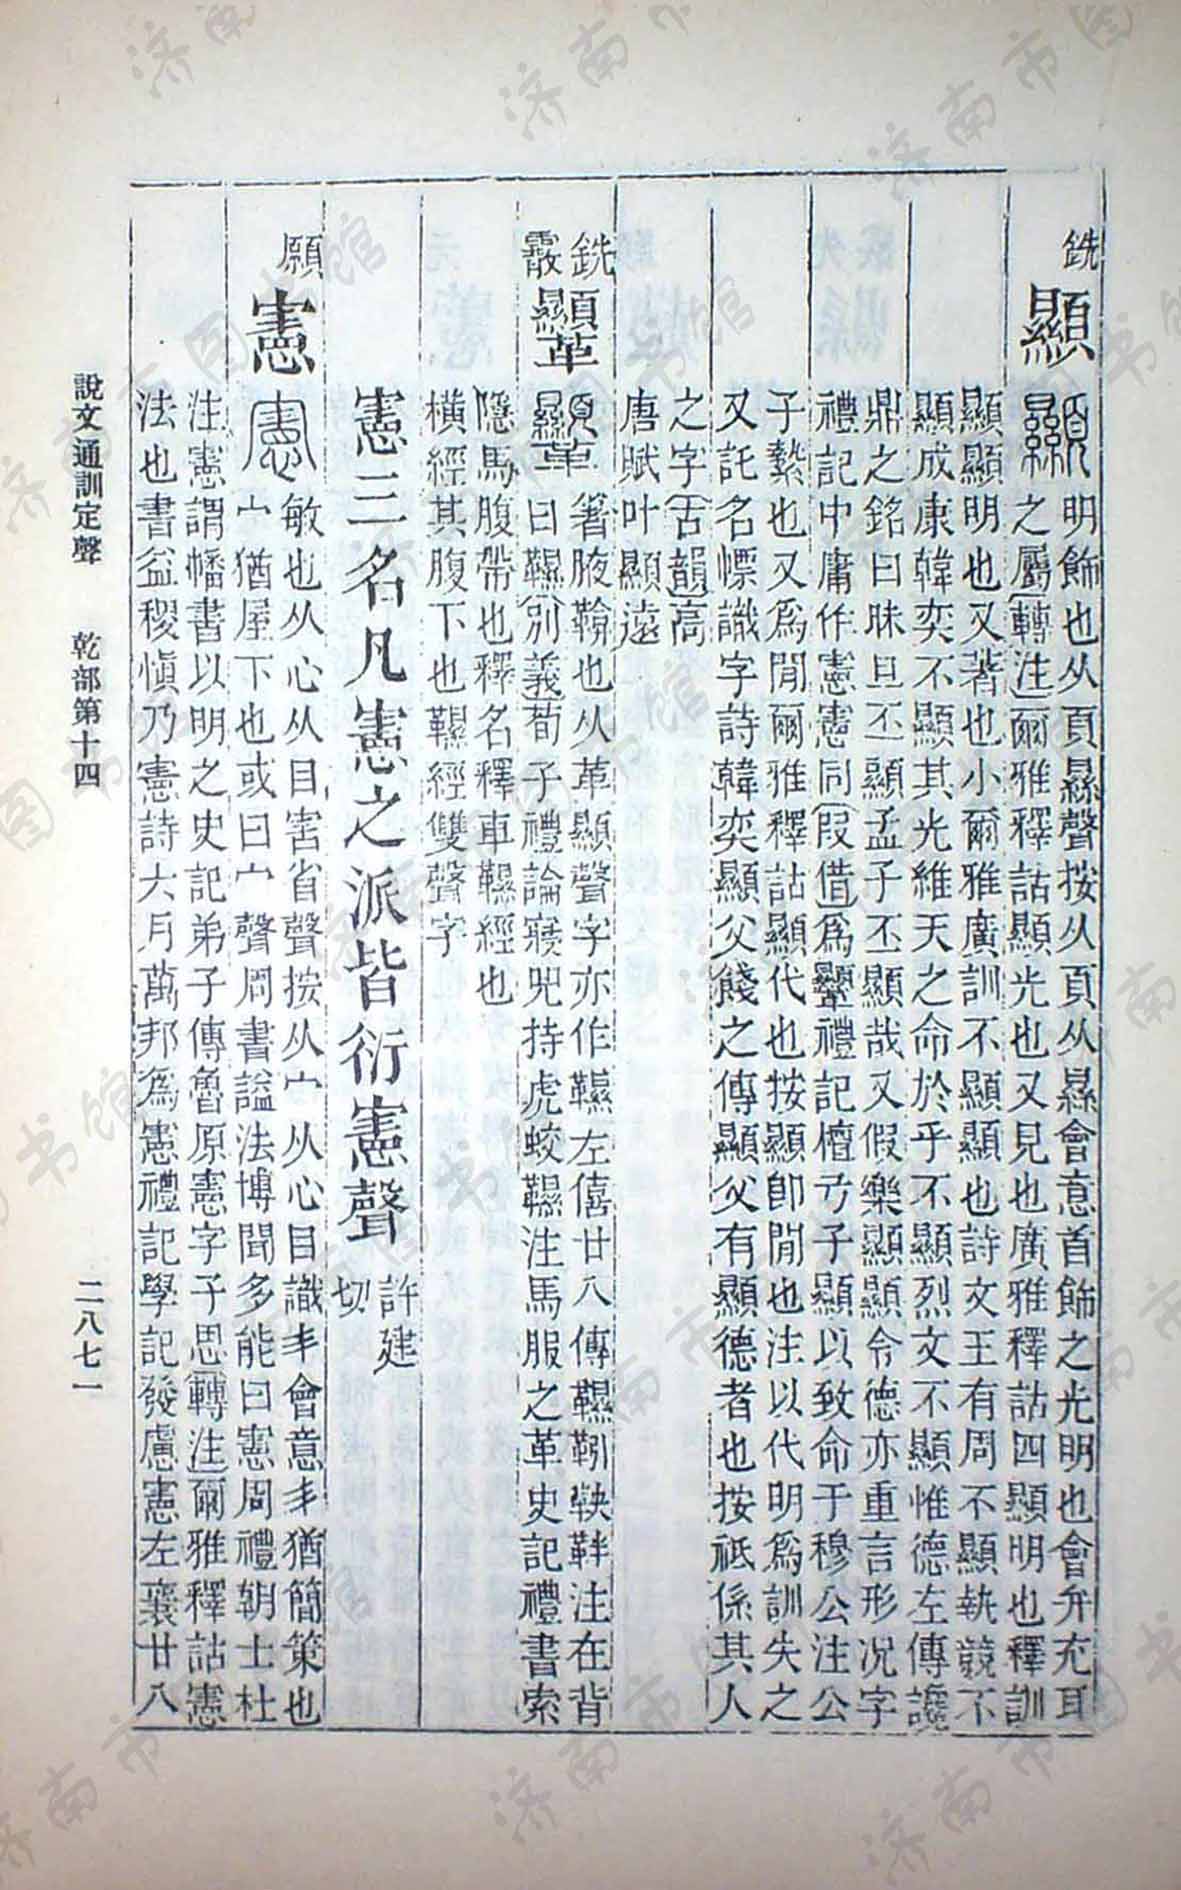 銑
顯
顯
明飾也从頁㬎聲按从頁从㬎會意首飾之光明也會弁充耳
之屬轉注爾雅釋詁顯光也又見也廣雅釋詁四顯明也釋訓
顯顯明也又著也小爾雅廣訓不顯顯也詩文王有周不顯執競不
顯成康韓奕不顯其光維天之命於乎不顯烈文不顯惟德左傳讒
鼎之銘曰昧旦丕顯孟子丕顯哉又假樂顯顯令德亦重言形况字
禮記中庸作憲憲同叚借爲韅禮記檀弓子顯以致命于穆公注公
子縶也又爲閒爾雅釋詁顯代也按顯卽閒也注以代明爲訓失之
又託名幖識字詩韓奕顯父餞之傳顯父有顯德者也按祗係其人
之字古韻高
唐賦叶顯遠
銑
霰
韅
韅
箸腋鞥也从革顯聲字亦作䪜左僖廿八傳䪜靷鞅靽注在背
曰䪜別義荀子禮論寢兕持虎蛟䪜注馬服之革史記禮書索
隱馬腹帶也釋名釋車䪜經也
橫經其腹下也䪜經雙聲字
憲三名凡憲之派皆衍憲聲
許建
切
願
憲
憲
敏也从心从目害省聲按从宀从心目識丯會意丯猶簡策也
宀猶屋下也或曰宀聲周書謚法博聞多能曰憲周禮朝士杜
注憲謂幡書以明之史記弟子傳魯原憲字子思轉注爾雅釋詁憲
法也書益稷愼乃憲詩六月萬邦爲憲禮記學記發慮憲左襄廿八
說文通訓定聲　乾部第十四
二八七一